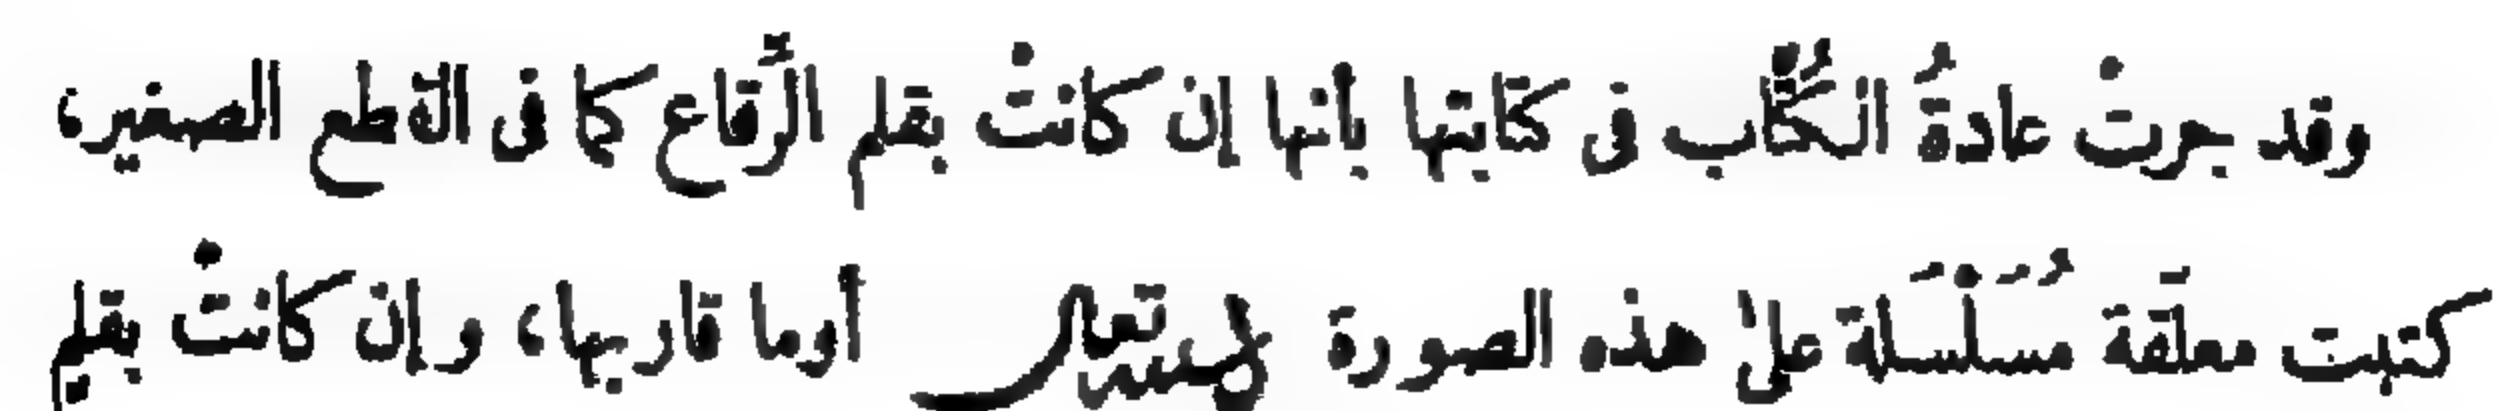 وقد جرتْ عادةُ الكُتَّاب فى كتابتها بأنها إن كانتْ بقلم الرِّقاع كما فى القطع الصغير،
كتبت معلَّقة مُسَلْسَلة على هذه الصورة أو ما قاربها، وإن كانتْ بقلم